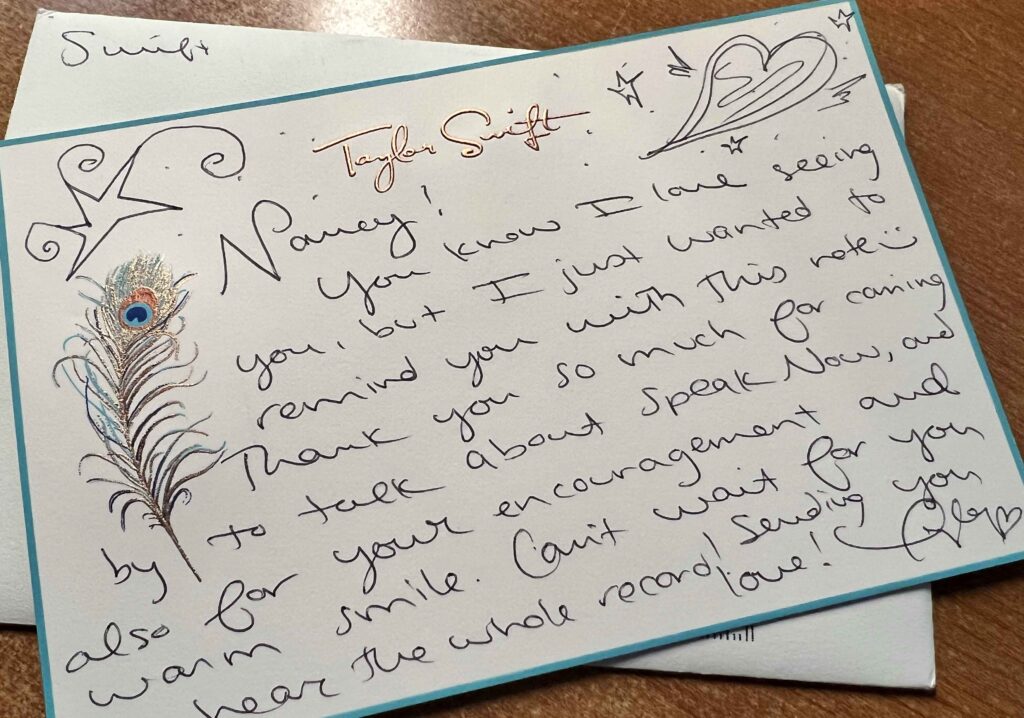 Swift
Taylor Swift
Nancy!
You know I love seeing
you, but I just wanted to
remind you with this note
Thank you so much for coming
by to talk about Speak Now, and
also for your encouragement and
warm smile. Can't wait for you
hear the whole record! Sending you
love!